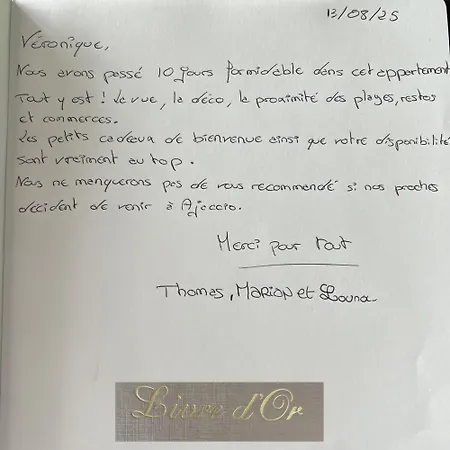 13/08/25
Véronique,
Nous avons passé 10 jours formidable dans cet appartement
Tout y est ! La vue, la déco, la proximité des plages, restos
et commerces.
Les petits cadeaux de bienvenue ainsi que votre disponibilité
sont vraiment au top.
Nous ne manquerons pas de vous recommandé si nos proches
décident de venir à Ajaccio.
Merci pour tout
Thomas, Marion et Louna
Livre d'Or